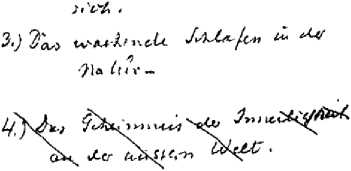 sich.
3.) Das wachende Schlafen in der
Natur –
4.) Das Geheimnis der Innerlichkeit
an der äussern Welt.